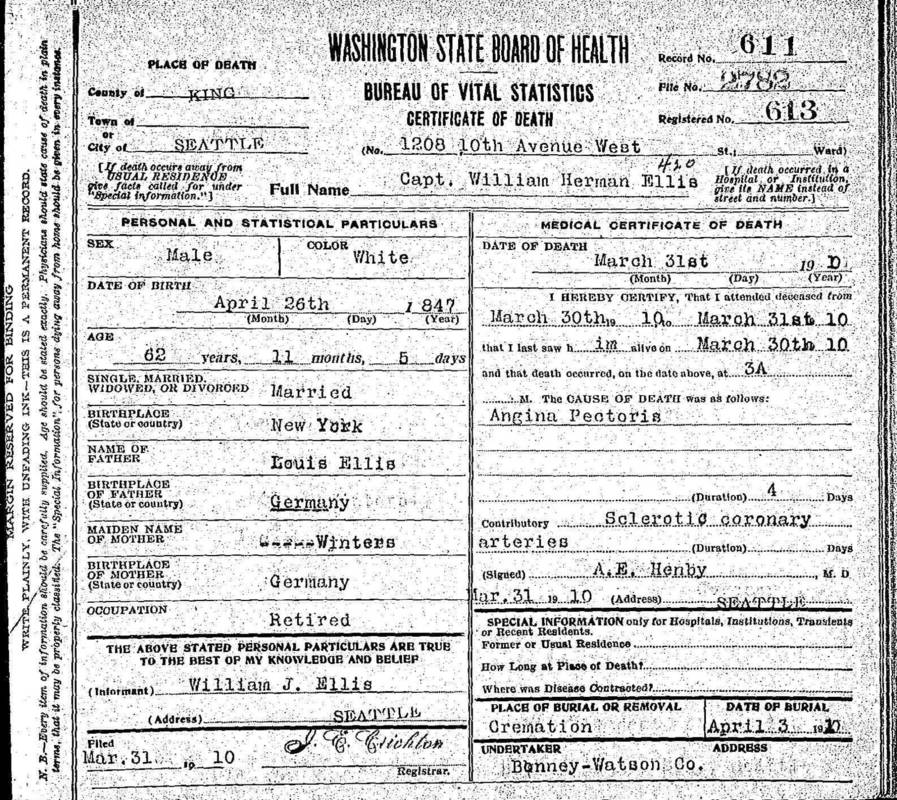 WASHINGTON STATE BOARD OF HEALTH
BUREAU OF VITAL STATISTICS
CERTIFICATE OF DEATH
Record No. 611
File No. 2782
Registered No. 613
PLACE OF DEATH
County of KING
Town of
or
City of SEATTLE
(No. 1208 10th Avenue West St., Ward)
420
[If death occurs away from
USUAL RESIDENCE
give facts called for under
"Special information."]
Full Name Capt. William Herman Ellis
[If death occurred in a
Hospital or Institution,
give its NAME instead of
street and number.]
PERSONAL AND STATISTICAL PARTICULARS
SEX Male
COLOR White
DATE OF BIRTH
April 26th 1847
(Month) (Day) (Year)
AGE
62 years, 11 months, 5 days
SINGLE, MARRIED,
WIDOWED, OR DIVORCED Married
BIRTHPLACE
(State or country) New York
NAME OF
FATHER Louis Ellis
BIRTHPLACE
OF FATHER
(State or country) Germany
MAIDEN NAME
OF MOTHER -----Winters
BIRTHPLACE
OF MOTHER
(State or country) Germany
OCCUPATION
Retired
THE ABOVE STATED PERSONAL PARTICULARS ARE TRUE
TO THE BEST OF MY KNOWLEDGE AND BELIEF
(Informant) William J. Ellis
(Address) SEATTLE
Filed
Mar. 31 19 10 J. E. Crichton
Registrar.
MEDICAL CERTIFICATE OF DEATH
DATE OF DEATH
March 31st 1910
(Month) (Day) (Year)
I HEREBY CERTIFY, That I attended deceased from
March 30th 19 10 to March 31st 10
that I last saw him alive on March 30th 10
and that death occurred, on the date above, at 3A
M. The CAUSE OF DEATH was as follows:
Angina Pectoris
(Duration) 4 Days
Contributory Sclerotic coronary
arteries (Duration) Days
(Signed) A.E. Henby, M. D
Mar. 31 19 10 (Address) SEATTLE
SPECIAL INFORMATION only for Hospitals, Institutions, Transients
or Recent Residents.
Former or Usual Residence
How Long at Place of Death?
Where was Disease Contracted?
PLACE OF BURIAL OR REMOVAL
Cremation
DATE OF BURIAL
April 3 1910
UNDERTAKER ADDRESS
Bonney-Watson Co.
MARGIN RESERVED FOR BINDING
WRITE PLAINLY, WITH UNFADING INK—THIS IS A PERMANENT RECORD.
N. B.—Every item of information should be carefully supplied. Age should be stated exactly. Physicians should state cause of death in plain
terms, that it may be properly classified. The "Special Information" for persons dying away from home should be given in every instance.